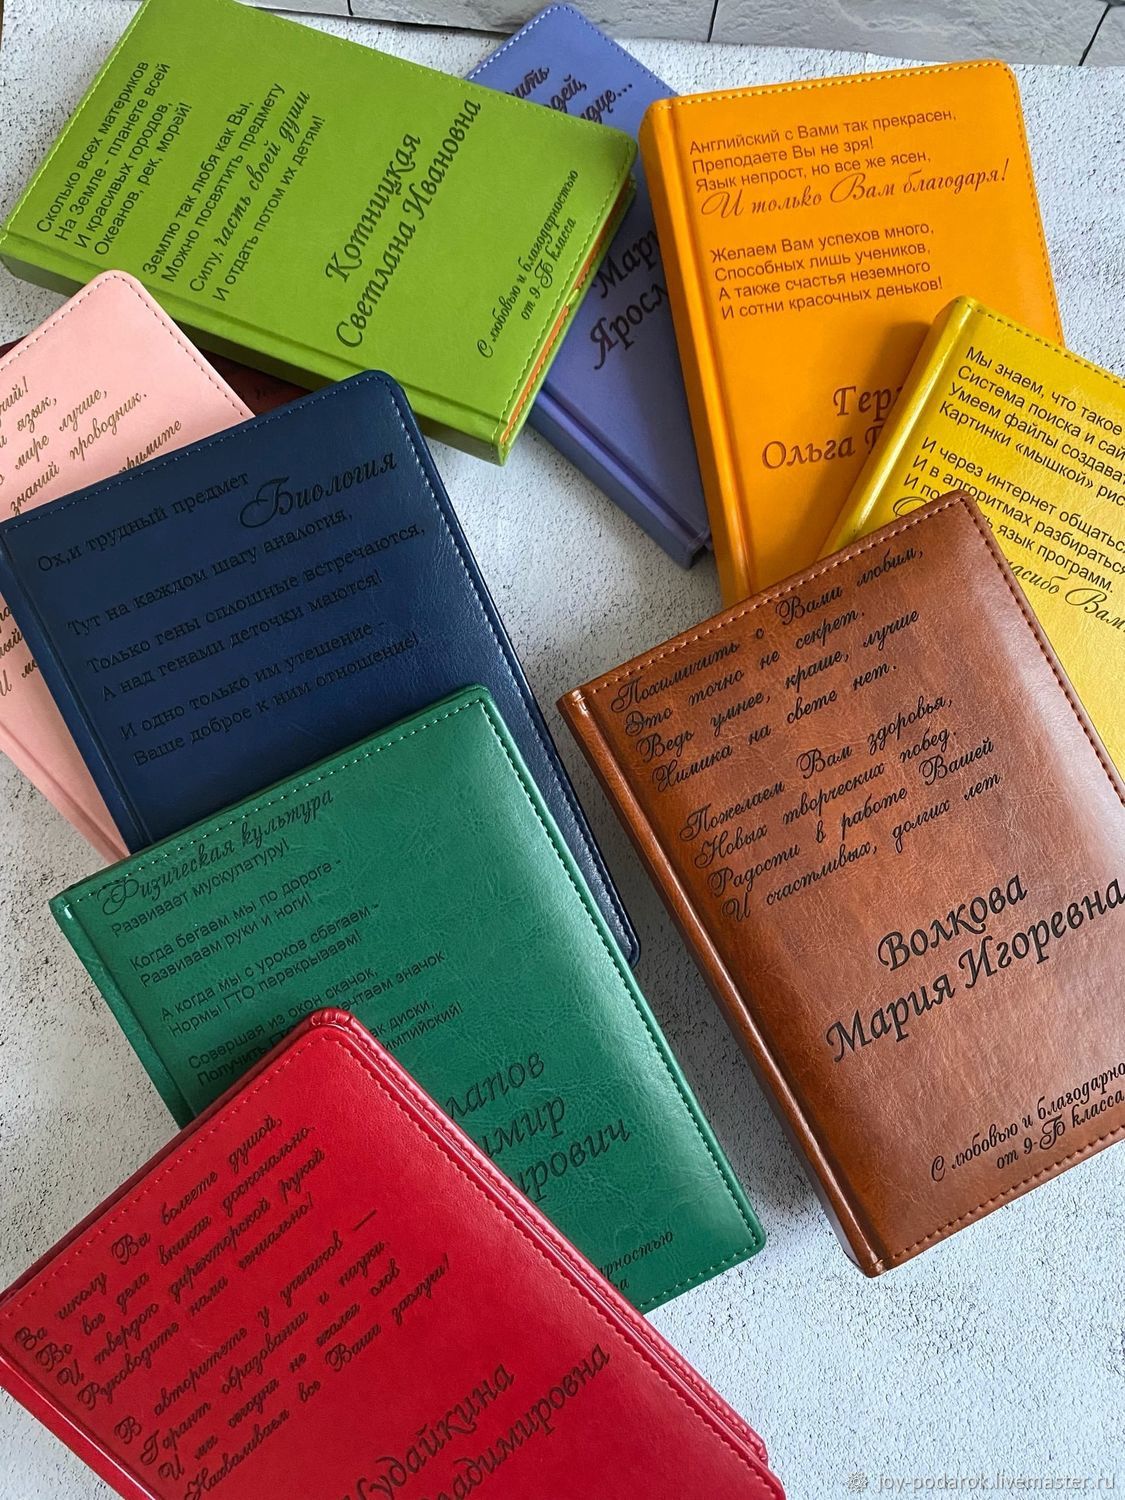 Сколько всех материков
На Земле - планете всей
И красивых городов,
Океанов, рек, морей!
Землю так любя как Вы,
Можно посвятить предмету
Силу, часть своей души
И отдать потом их детям!
Котницкая
Светлана Ивановна
С любовью и благодарностью
от 9-Б класса
Английский с Вами так прекрасен,
Преподаете Вы не зря!
Язык непрост, но все же ясен,
И только Вам благодаря!
Желаем Вам успехов много,
Способных лишь учеников,
А также счастья неземного
И сотни красочных деньков!
Ольга
Мы знаем, что такое
Система поиска и
Умеем файлы
Картинки «мышкой»
И через интернет общаться
И в алгоритмах разбираться
язык программ.
Вам
язык,
мире лучше,
знаний проводник.
Ох,и трудный предмет
Биология
Тут на каждом шагу аналогия,
Только гены сплошные встречаются,
А над генами деточки маются!
И одно только им утешение -
Ваше доброе к ним отношение!
Похимичить с Вами любим,
Это точно не секрет.
Ведь умнее, краше, лучше
Химика на свете нет.
Пожелаем Вам здоровья,
Новых творческих побед.
Радости в работе Вашей
И счастливых, долгих лет
Волкова
Мария Игоревна
С любовью и
от 9-Б класса
Физическая культура
Развивает мускулатуру!
Когда бегаем мы по дороге -
Развиваем руки и ноги!
А когда мы с уроков сбегаем -
Нормы ГТО перекрываем!
Совершая из окон скачок,
Получить значок
диски,
За школу Вы болеете душой,
Во все дела вникая досконально.
И твердою директорской рукой
Руководите нами гениально!
В авторитете у учеников —
Гарант образования и науки.
И мы сегодня не жалея слов
Нахваливаем все Ваши заслуги!
joy-podarok.livemaster.ru